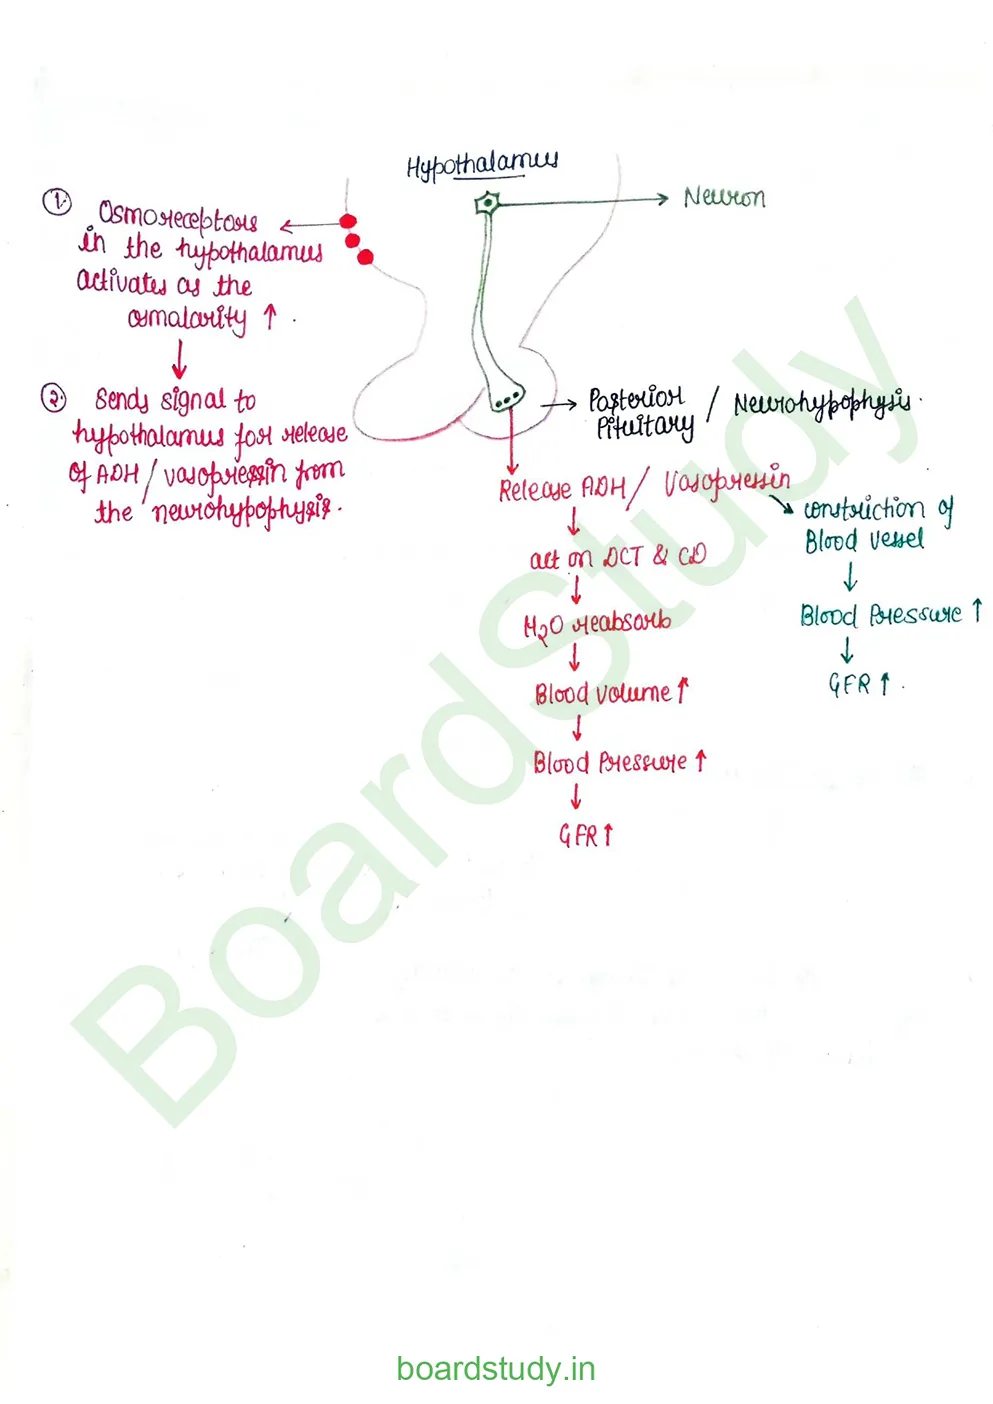 Hypothalamus
Neuron
1.
Osmoreceptors
in the hypothalamus
activates as the
osmalarity ↑ .
2.
Sends signal to
hypothalamus for release
of ADH / vasopressin from
the neurohypophysis.
Posterior / Neurohypophysis.
Pituitary
Release ADH / Vasopressin
act on DCT & CD
H₂O reabsorb
Blood volume ↑
Blood Pressure ↑
GFR ↑
constriction of
Blood vessel
Blood Pressure ↑
GFR ↑ .
BoardStudy
boardstudy.in